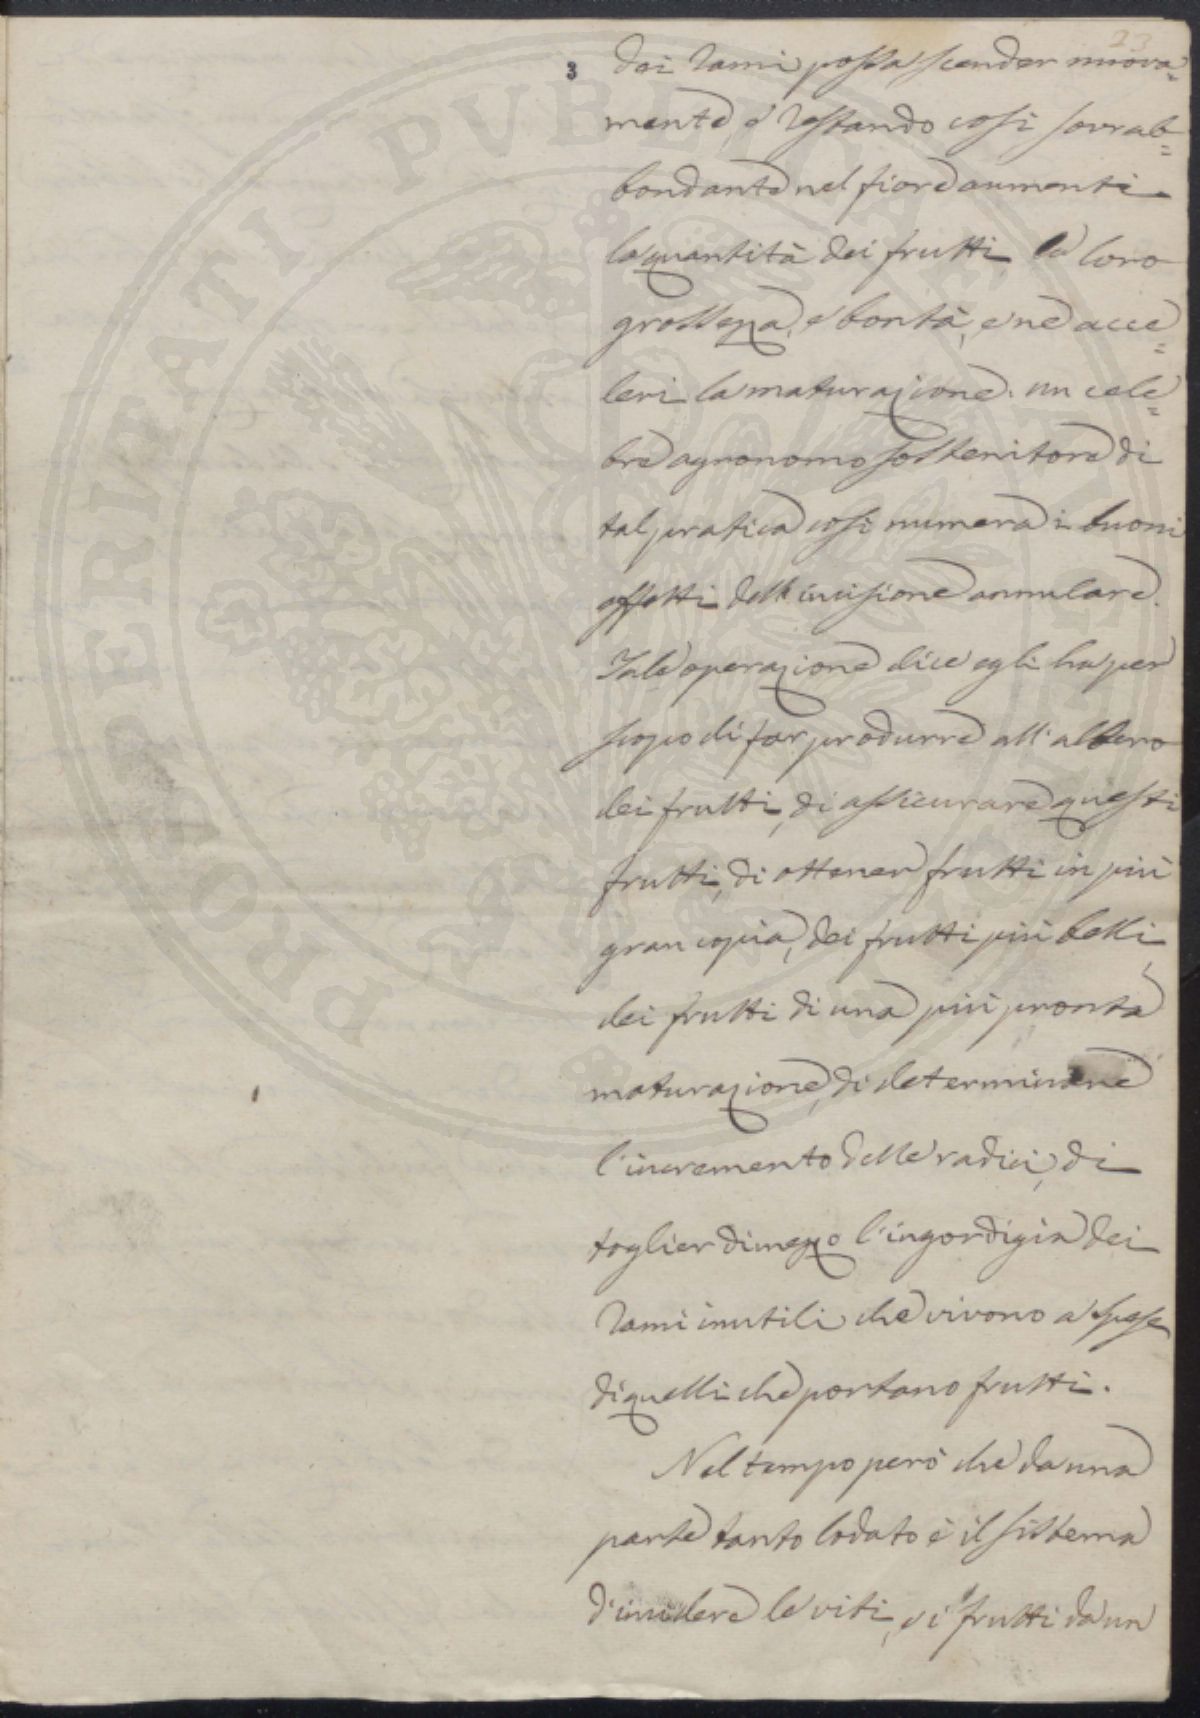 23
3
dei rami possa scender nuova=
mente, e restando così sovrab=
bondante nel fiore aumenti
la quantità dei frutti, la loro
grossezza, e bontà, e ne acce=
leri la maturazione. un cele=
bre agronomo sostenitore di
tal pratica così numera i buoni
effetti dell'incisione annulare.
Tale operazione dice egli ha per
scopo di far produrre all'albero
dei frutti, di assicurare questi
frutti, di ottener frutti in più
gran copia, dei frutti più belli,
dei frutti di una più pronta
maturazione, di determinare
l'incremento delle radici, di
toglier di mezzo l'ingordigia dei
rami inutili che vivono a spese
di quelli che portano frutti.
Nel tempo però che da una
parte tanto lodato è il sistema
d'incidere le viti, e i frutti da un
PROSPERITATI PUBLICAE